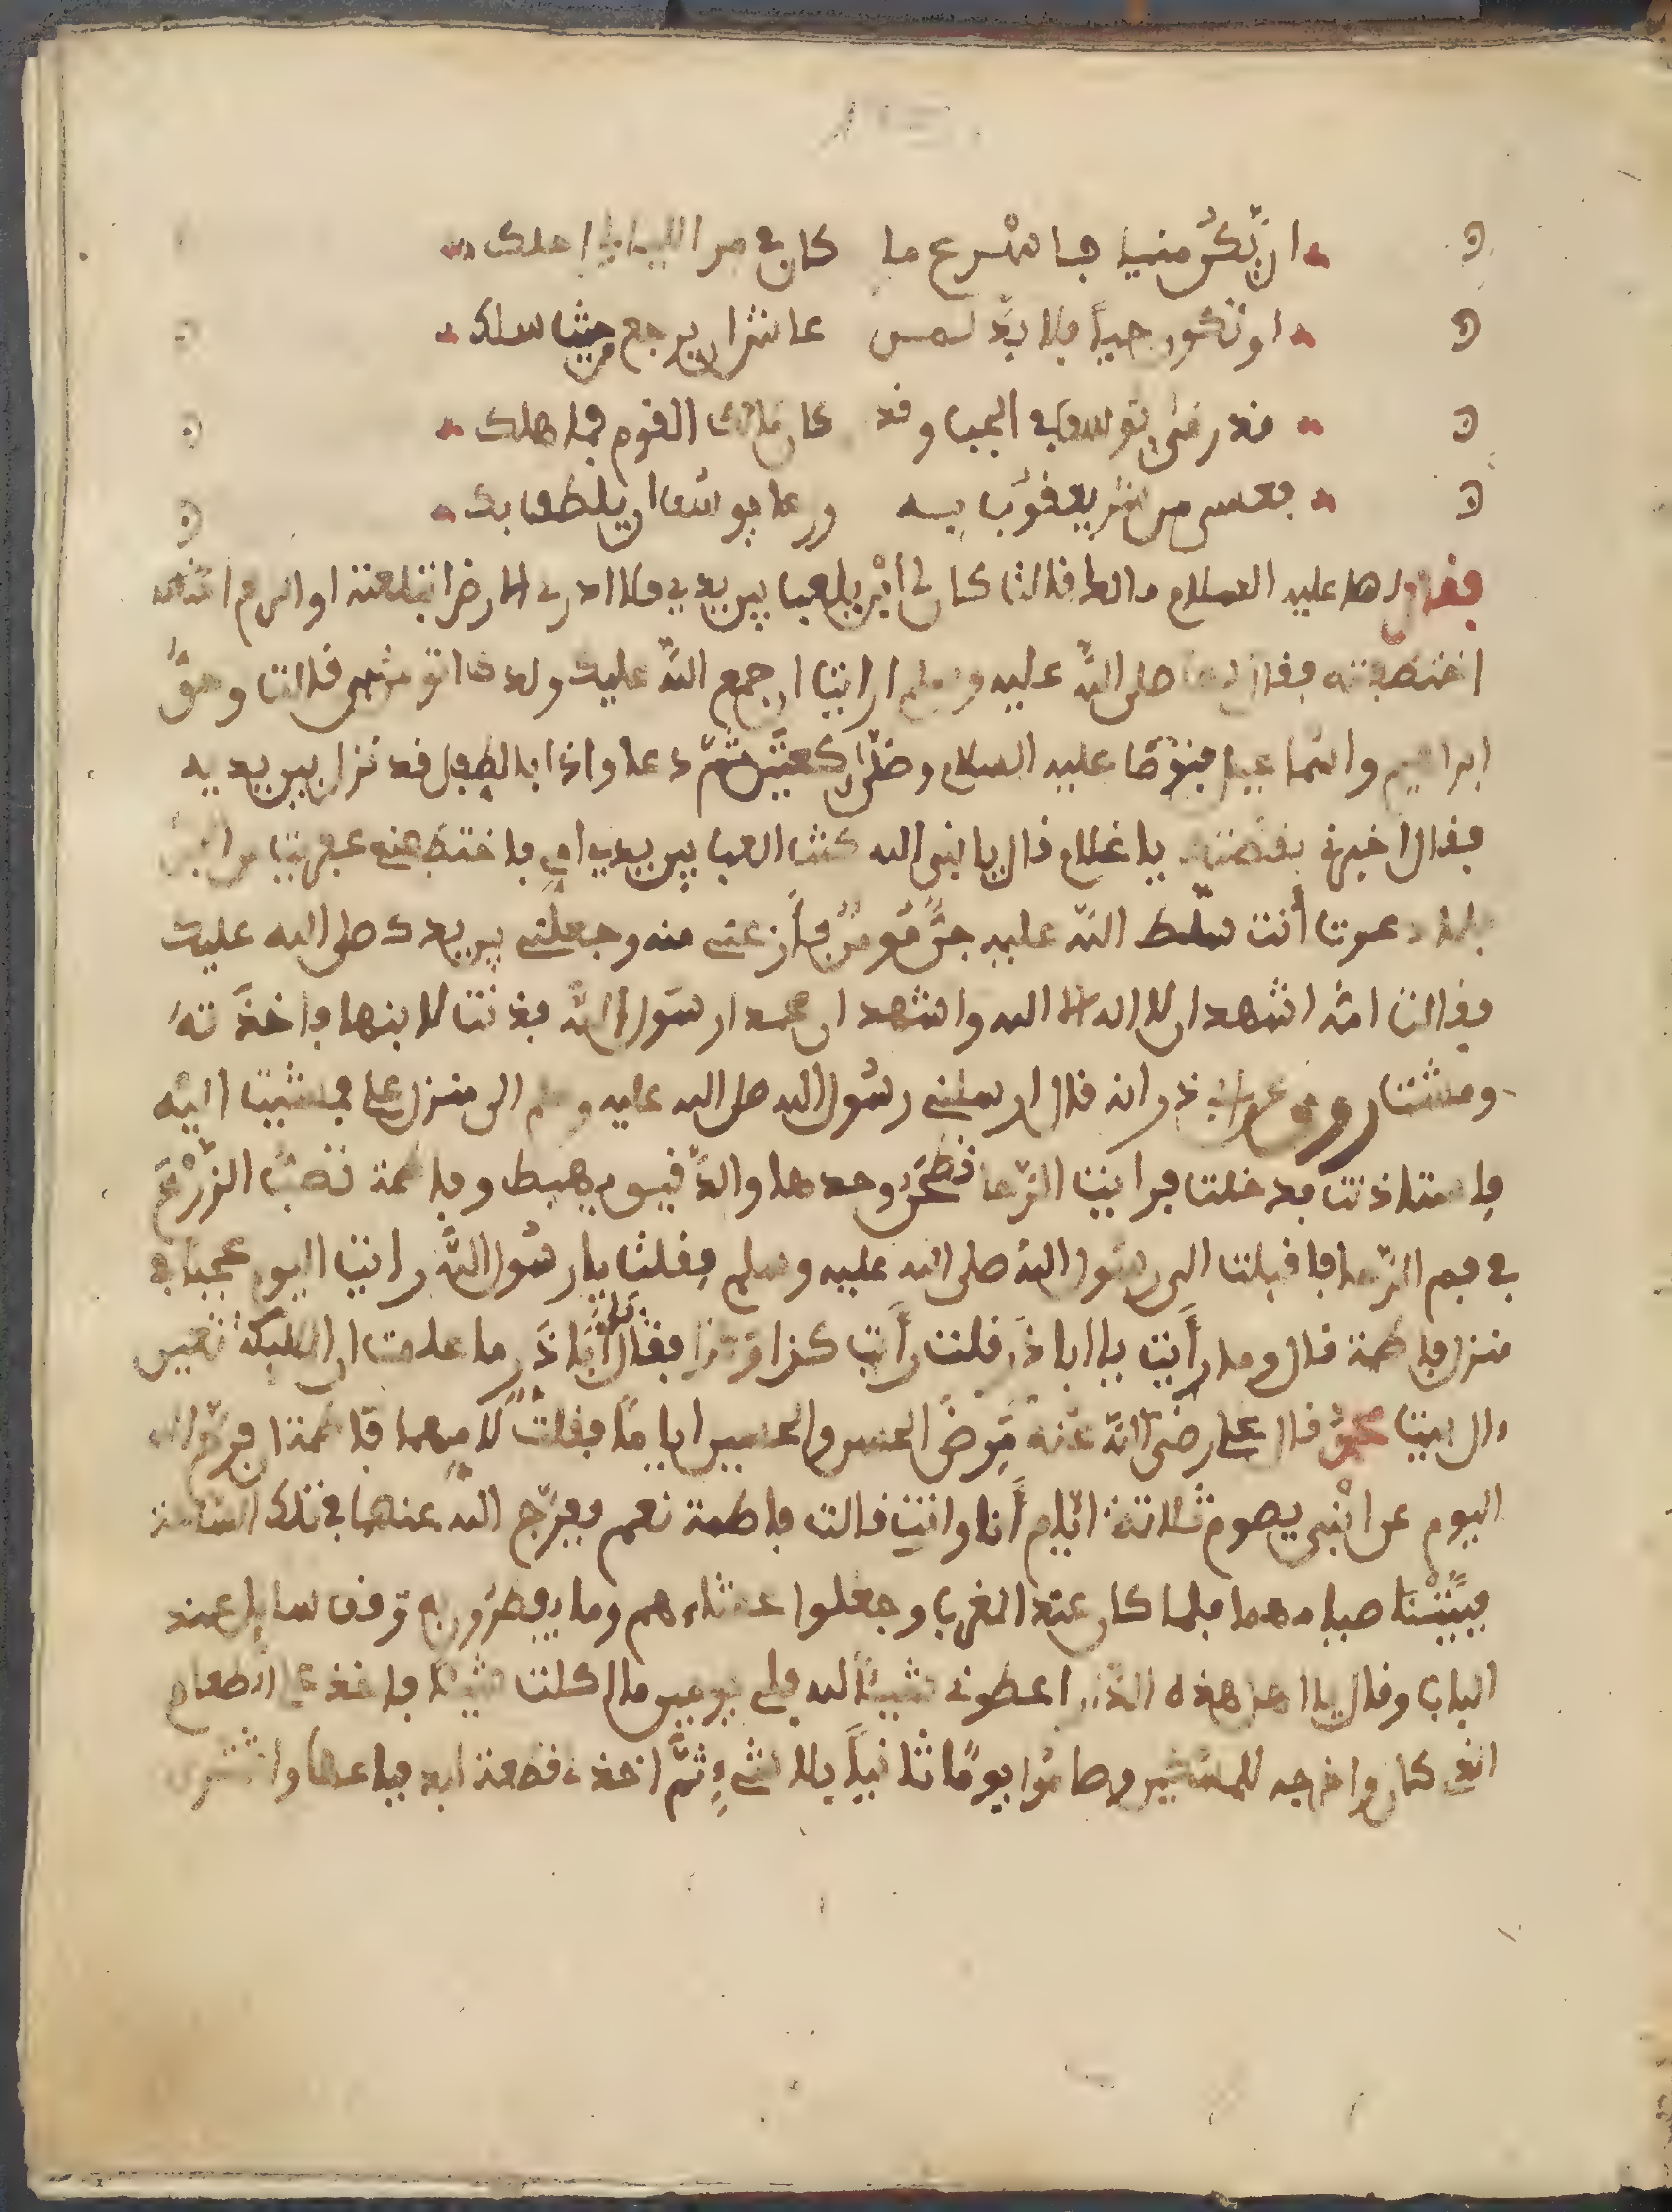 ان تكن ميتا فما اسرع ما كان في مر الليالي اجلك
او تكون حيا فلا بد لمن عاش ان يرجع من حيث سلك
قد رمي يوسف في الجب وقد كان مالك القوم فما هلك
فعسى من سر يعقوب به ورعا يوسف ان يلطف بك
فقال لها عليه السلام مالك قالت كان لي ابن يلعب بين يدي فلا ادري الارض ابتلعته او
اختطفته فقال لها صلى الله عليه وسلم ارايت ان جمع الله عليك ولدك اتومنين قالت وحق
ابراهيم واسماعيل فتوضا عليه السلام وصلى ركعتين ثم دعا واذا بالطفل قد نزل بين يديه
فقال اخبرني بقصتك يا غلام قال يا نبي الله كنت العب بين يدي امي فاختطفني عفريت من الجن
فلما دعوت أنت سلط الله عليه جن مومن فانزعني منه وجعلني بين يديك صلى الله عليك
فقالت امه اشهد ان لا اله الا الله واشهد ان محمدا رسول الله فدنت لابنها فاخذته
ومشت روي عن ابي ذر انه قال ارسلني رسول الله صلى الله عليه وسلم الى منزل علي فمشيت اليه
فاستاذنت فدخلت فرايت الرحا تطحن وحدها والدقيق يهبط وفاطمة تصب الزرع
في فم الرحا فاقبلت الى رسول الله صلى الله عليه وسلم فقلت يا رسول الله رايت اليوم عجبا في
منزل فاطمة قال وما رأيت يا ابا ذر قلت رأيت كذا وكذا فقال يا أبا ذر ما علمت ان الملايكة تعين
ءال البيت قال علي رضي الله عنه مرض الحسن والحسين اياما فقلت لامهما فاطمة ان فرج الله
اليوم عن ابني يصوم ثلاثة ايام أنا وانت قالت فاطمة نعم ففرج الله عنهما في تلك الساعة
فبيتنا صيامهما فلما كان عند المغرب وجعلوا عشاءهم وما يفطرون به وقف سايل عند
الباب وقال يا اهل هذه الدار اعطوني شيئا لله فلي يومين ما اكلت شيئا فاخذ علي الطعام
الذي كان واخرجه للمسكين وصاموا يوما ثانيا بلا شيء ثم اخذ قطعة فباعها واشترى